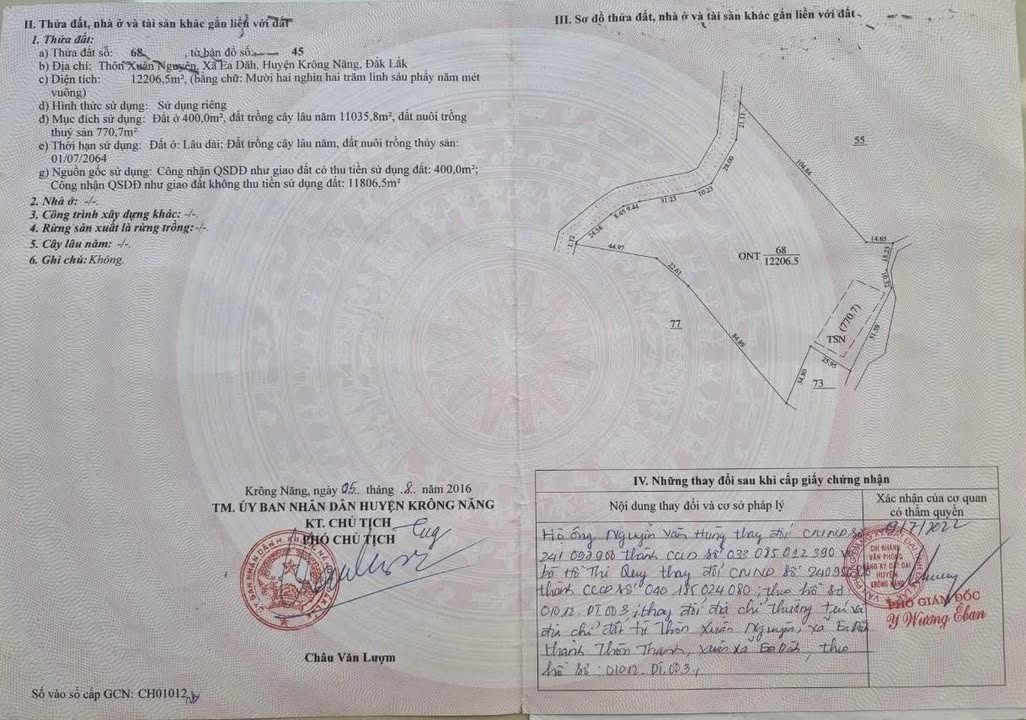 II. Thửa đất, nhà ở và tài sản khác gắn liền với đất
1. Thửa đất:
a) Thửa đất số: 68 , tờ bản đồ số: 45
b) Địa chỉ: Thôn Xuân Nguyên, Xã Ea Dăh, Huyện Krông Năng, Đắk Lắk
c) Diện tích: 12206,5m², (bằng chữ: Mười hai nghìn hai trăm linh sáu phẩy năm mét
vuông)
d) Hình thức sử dụng: Sử dụng riêng
đ) Mục đích sử dụng: Đất ở 400,0m², đất trồng cây lâu năm 11035,8m², đất nuôi trồng
thuỷ sản 770,7m²
e) Thời hạn sử dụng: Đất ở: Lâu dài; Đất trồng cây lâu năm, đất nuôi trồng thủy sản:
01/07/2064
g) Nguồn gốc sử dụng: Công nhận QSDĐ như giao đất có thu tiền sử dụng đất: 400,0m²;
Công nhận QSDĐ như giao đất không thu tiền sử dụng đất: 11806,5m²
2. Nhà ở: -/-.
3. Công trình xây dựng khác: -/-.
4. Rừng sản xuất là rừng trồng: -/-.
5. Cây lâu năm: -/-.
6. Ghi chú: Không.
Krông Năng, ngày 05 tháng 8 năm 2016
TM. ỦY BAN NHÂN DÂN HUYỆN KRÔNG NĂNG
KT. CHỦ TỊCH
PHÓ CHỦ TỊCH
Châu Văn Lượm
Số vào sổ cấp GCN: CH01012
III. Sơ đồ thửa đất, nhà ở và tài sản khác gắn liền với đất
21.11
55
28.00
104.84
10.23
31.23
9.44
8.45
24.58
1.12
44.97
14.65
15.23
10.52
ONT 68
12206.5
22.61
77
84.89
TSN (770.7)
51.59
25.95
34.80
73
IV. Những thay đổi sau khi cấp giấy chứng nhận
Nội dung thay đổi và cơ sở pháp lý
Xác nhận của cơ quan
có thẩm quyền
Hộ ông Nguyễn Văn Hùng thay đổi CMND số
241 098 908 thành CCCD số 033 085 012 390
bà Hồ Thị Quy thay đổi CMND số
thành CCCD số 040 185 024 080; theo hồ sơ
01012.DT.003; thay đổi địa chỉ thường trú và
địa chỉ đất từ Thôn Xuân Nguyên, xã Ea Dăh
thành Thôn Thanh Xuân xã Ea Dăh, theo
hồ sơ: 01012.DT.003
19/7/2022
CHI NHÁNH
VĂN PHÒNG
ĐĂNG KÝ ĐẤT ĐAI
HUYỆN
KRÔNG NĂNG
PHÓ GIÁM ĐỐC
Y Wương Êban